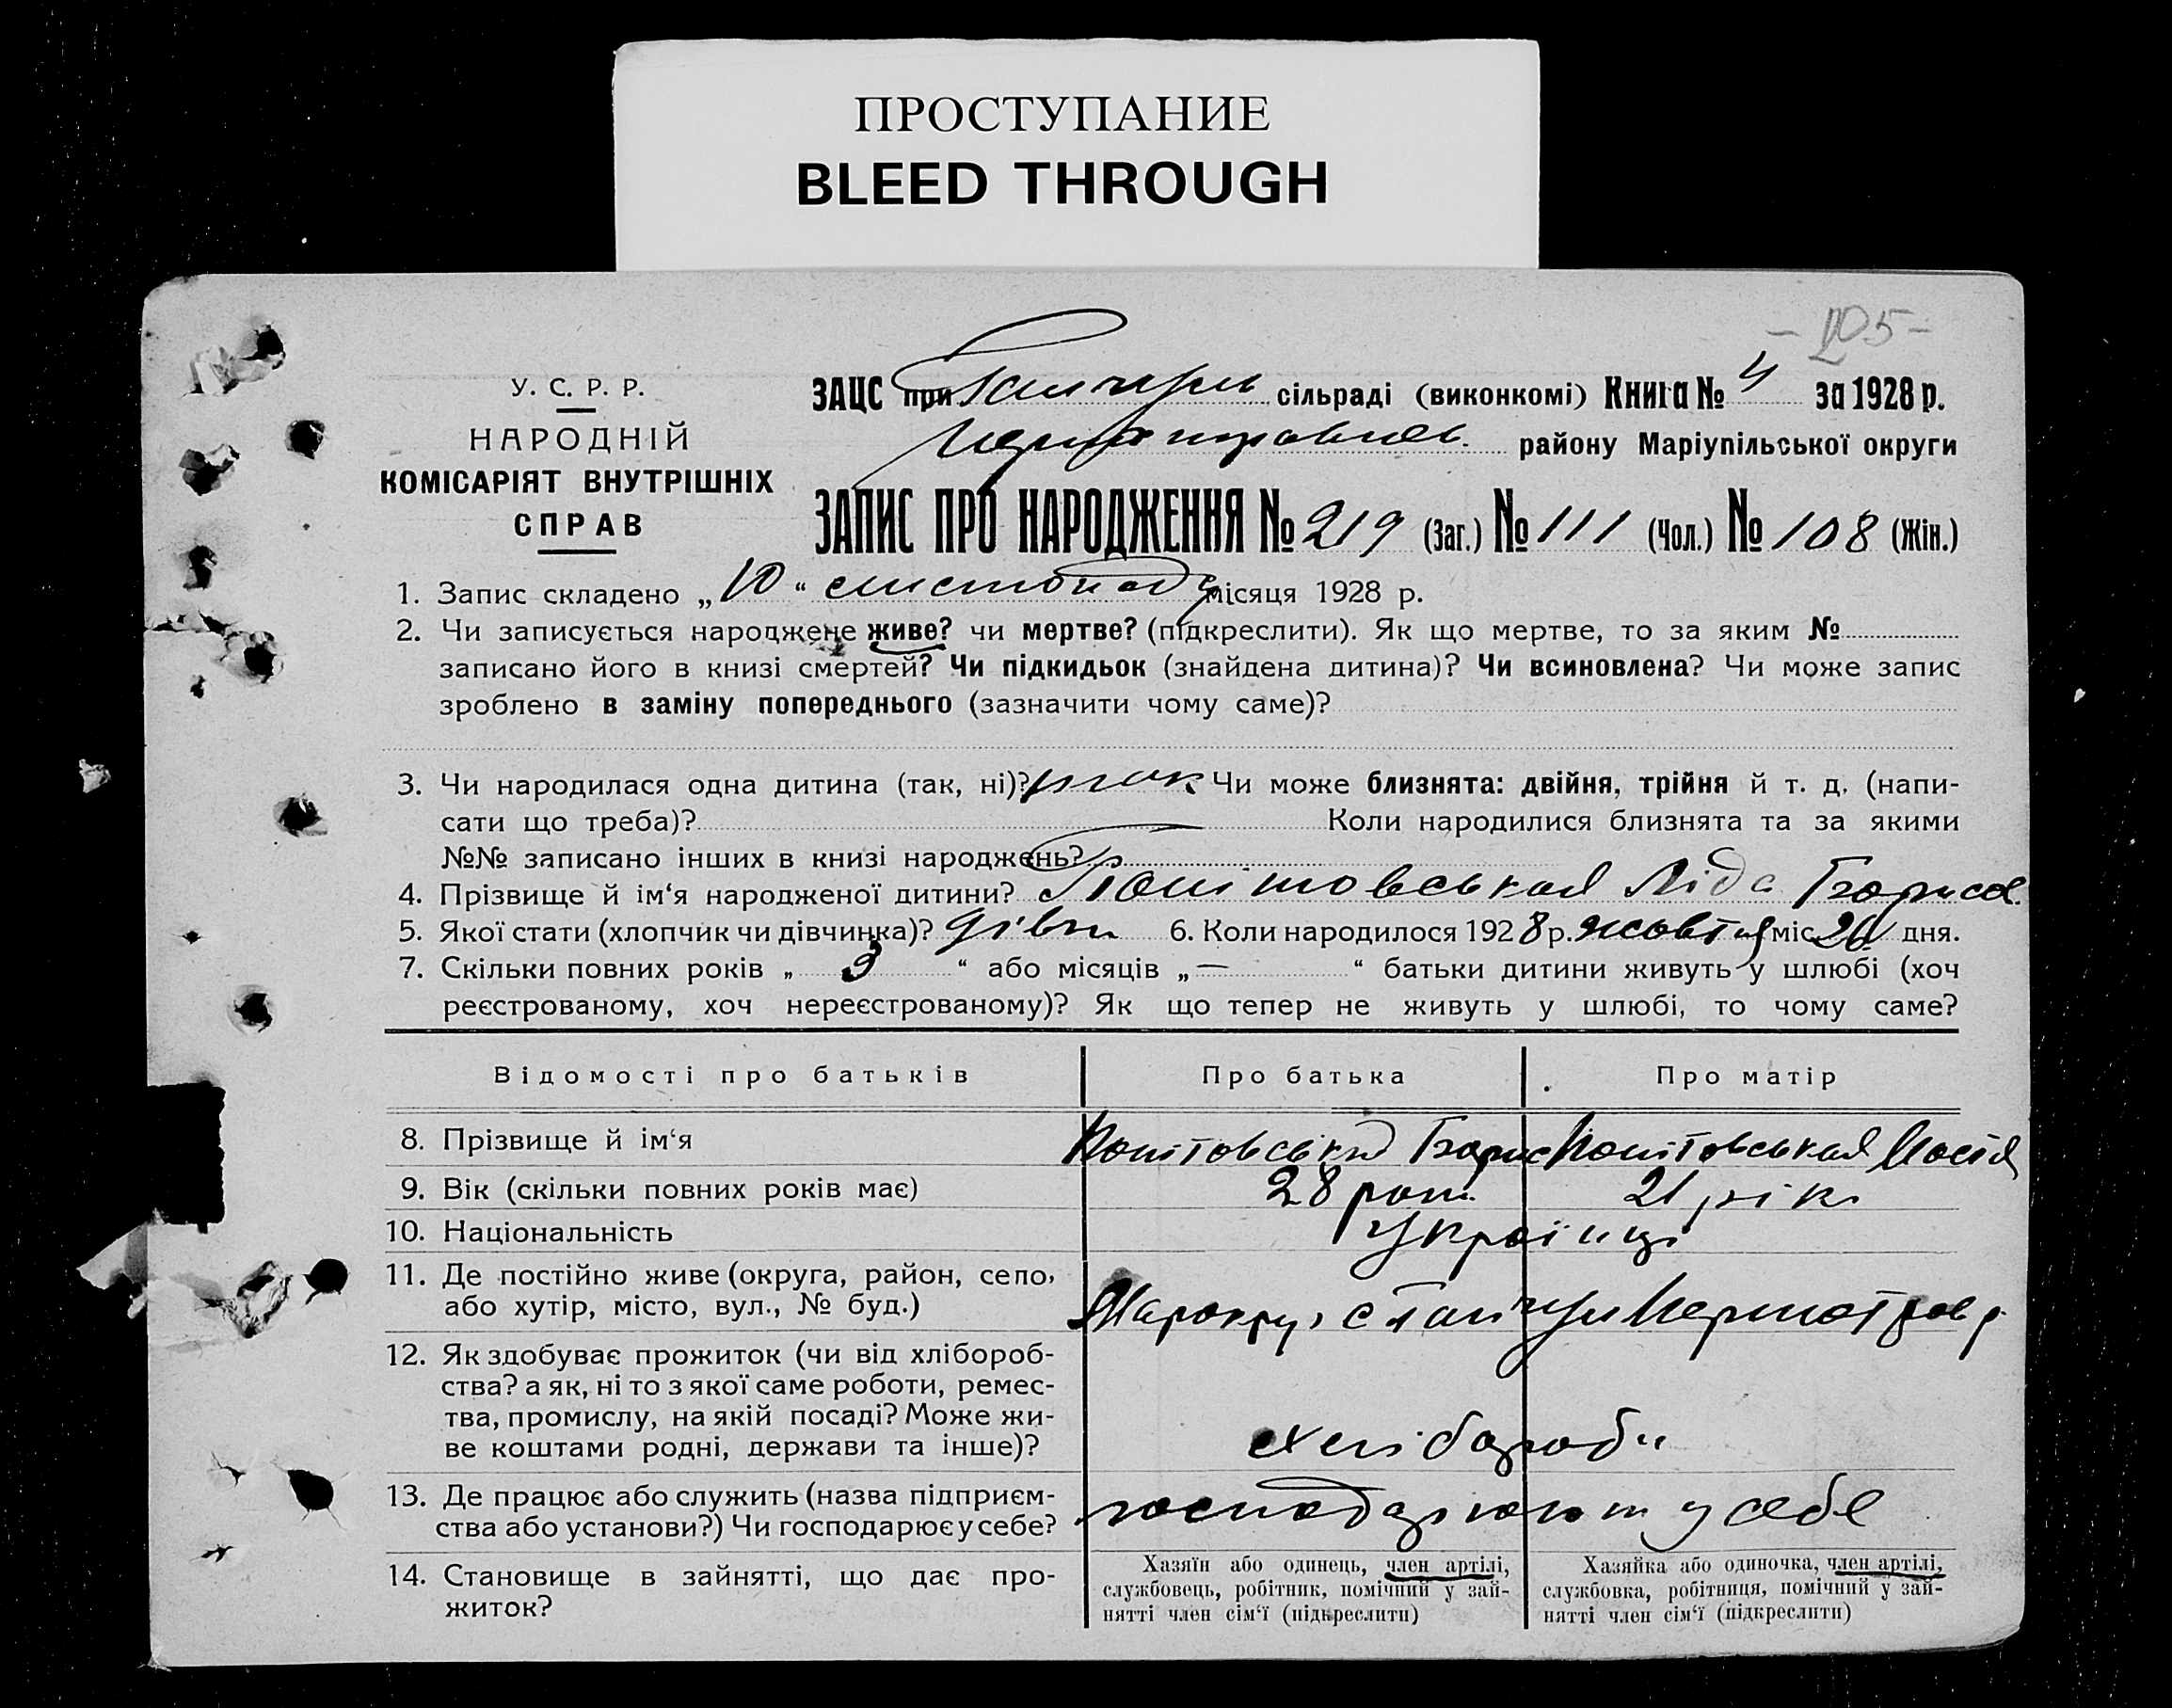 ПРОСТУПАНИЕ
BLEED THROUGH
У. С. Р. Р.
НАРОДНІЙ
КОМІСАРІЯТ ВНУТРІШНІХ
СПРАВ
ЗАЦС при сільраді (виконкомі) Книга № 4 за 1928 р.
району Маріупільської округи
ЗАПИС ПРО НАРОДЖЕННЯ № 219 (Заг.) № 111 (Чол.) № 108 (Жін.)
1. Запис складено „10“ листопаду місяця 1928 р.
2. Чи записується народжене живе? чи мертве? (підкреслити). Як що мертве, то за яким №
записано його в книзі смертей? Чи підкидьок (знайдена дитина)? Чи всиновлена? Чи може запис
зроблено в заміну попереднього (зазначити чому саме)?
3. Чи народилася одна дитина (так, ні)? так Чи може близнята: двійня, трійня й т. д. (напи-
сати що треба)? Коли народилися близнята та за якими
№№ записано інших в книзі народжень?
4. Прізвище й ім‘я народженої дитини? Ліда Борисов.
5. Якої статі (хлопчик чи дівчинка)? дівч 6. Коли народилося 1928 р. жовтня міс 26 дня.
7. Скільки повних років „ 3 “ або місяців „ — “ батьки дитини живуть у шлюбі (хоч
реєстрованому, хоч нереєстрованому)? Як що тепер не живуть у шлюбі, то чому саме?
Відомості про батьків Про батька Про матір
8. Прізвище й ім‘я Борис
9. Вік (скільки повних років має) 28 рок. 21 рік
10. Національність Українці
11. Де постійно живе (округа, район, село,
або хутір, місто, вул., № буд.)
12. Як здобуває прожиток (чи від хлібороб-
ства? а як, ні то з якої саме роботи, ремес-
тва, промислу, на якій посаді? Може жи-
ве коштами родні, держави та інше)? хлібороби
13. Де працює або служить (назва підприєм-
ства або установи?) Чи господарює у себе? господарюют у себе
14. Становище в зайнятті, що дає про-
житок?
Хазяїн або одинець, член артілі,
службовець, робітник, помічний у зай-
нятті член сім‘ї (підкреслити)
Хазяйка або одиночка, член артілі,
службовка, робітниця, помічний у зай-
нятті член сім‘ї (підкреслити)